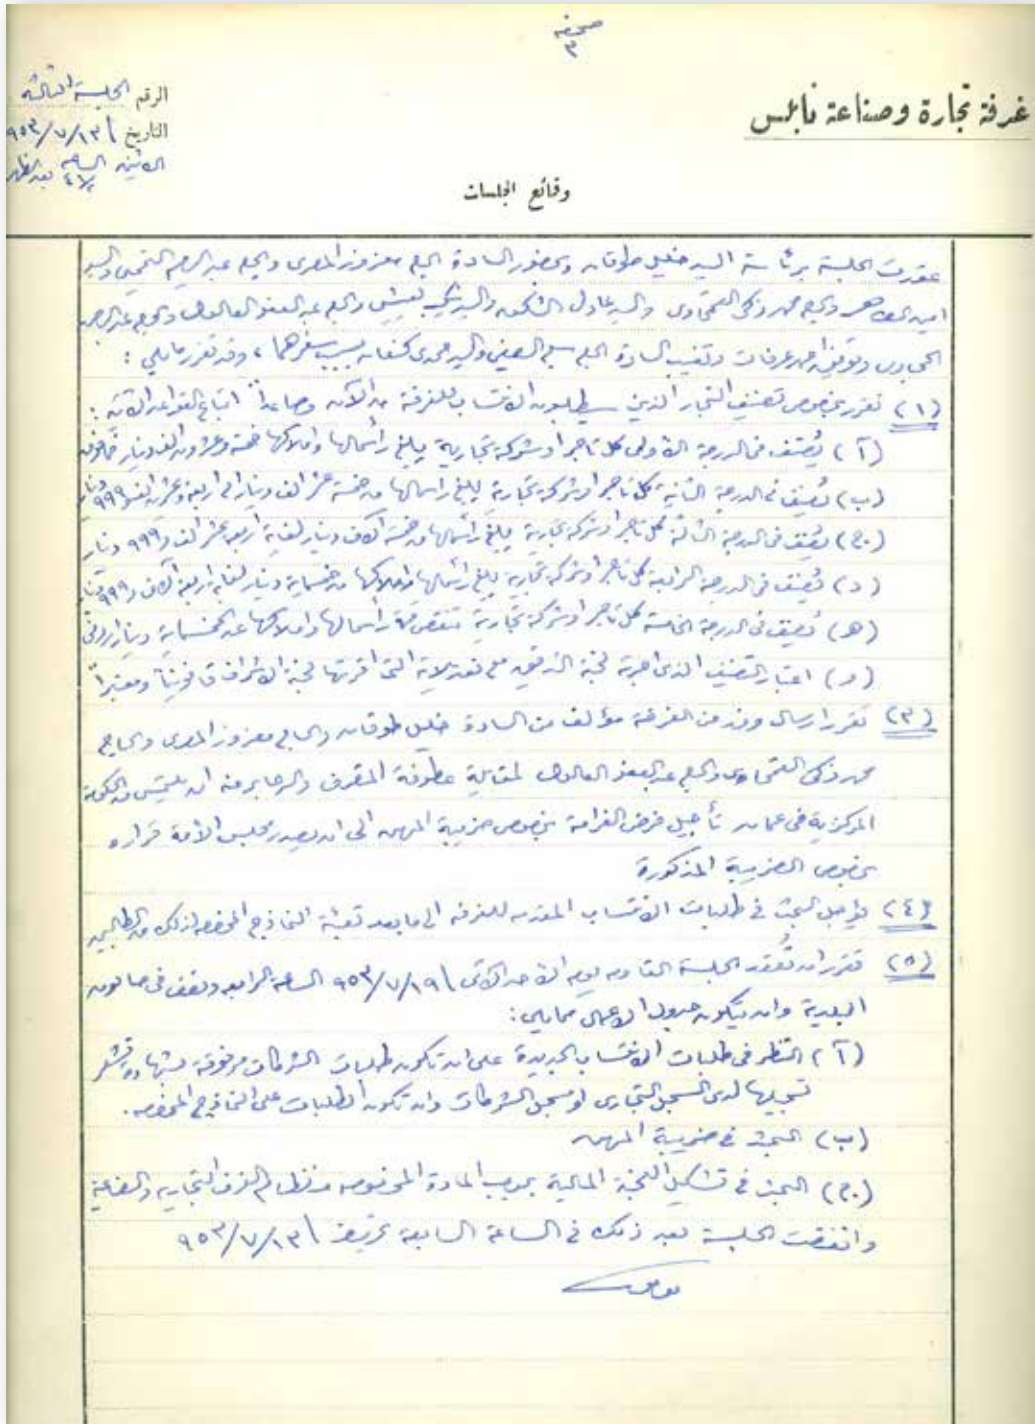 صحيفة
٣
غرفة تجارة وصناعة نابلس
الرقم الجلسة الثالثة
التاريخ ١٣/٧/٩٥٣
الاثنين الساعة ٤½ بعد الظهر
وقائع الجلسات
عقدت الجلسة برئاسة السيد خليل طوقان وبحضور السادة الحاج معزوز المصري والحاج عبد الرحيم التميمي والسيد
امين والحاج محمد زكي التمتماوي والسيد عادل الشكعه والسيد والحاج عبد العفو العالول والحاج عبد الرحيم
الحجاوي وتوفيق احمد عرفات وتغيب السادة الحاج والسيد حمدي كنعان بسبب سفرهما، وقد تقرر مايلي :
(١) تقرر بخصوص تصنيف التجار الذين سيطلبون الانتساب للغرفة من الآن وصاعداً اتباع القواعد الآتية :
(آ) يُصنف في الدرجة الاولى كل تاجر او شركة تجارية يبلغ رأسمالها واملاكها خمسة وعشرون الف دينار فما فوق
(ب) يُصنف في الدرجة الثانية كل تاجر او شركة تجارية يبلغ رأسمالها من خمسة عشر الف دينار الى اربعة وعشرين الف و٩٩٩ دينار
(ج) يُصنف في الدرجة الثالثة كل تاجر او شركة تجارية يبلغ رأسمالها من خمسة آلاف دينار لغاية اربعة عشر الف و٩٩٩ دينار
(د) يُصنف في الدرجة الرابعة كل تاجر او شركة تجارية يبلغ رأسمالها واملاكها من خمسماية دينار لغاية اربعة آلاف و٩٩٩ دينار
(ه) يُصنف في الدرجة الخامسة كل تاجر او شركة تجارية تنقص قيمة رأسمالها واملاكها عن الخمسماية دينار اردني
(و) اعتبار التصنيف الذي اجرته لجنة التدقيق مع تعديلاته التي اقرتها لجنة الاشراف قانونياً ومعتبراً
(٣) تقرر ارسال وفد من الغرفة مؤلف من السادة خليل طوقان والحاج معزوز المصري والحاج
محمد زكي التمتماوي والحاج عبد العفو العالول لمقابلة عطوفة المتصرف والرجاء منه ان يلتمس من الحكومة
المركزية في عمان تأجيل فرض الغرامة بخصوص ضريبة المهن الى ان يصدر مجلس الأمة قراره
بخصوص الضريبة المذكورة
(٤) يؤجل البحث في طلبات الانتساب المقدمه للغرفه الى ما بعد تعبئة النماذج المخصصه لذلك من الطالبين
(٥) تقرر ان تُعقد الجلسة القادمه يوم الاحد الآتي ١٩/٧/٩٥٣ الساعه الرابعه ونصف في صالون
البلدية وان يكون جدول الاعمال ممايلي :
(آ) النظر في طلبات الانتساب الجديدة على ان تكون طلبات الشركات مرفوقة
تسجيلها لدى السجل التجاري او مسجل الشركات وان تكون الطلبات على النماذج المخصصه.
(ب) البحث في ضريبة المهن
(ج) البحث في تشكيل اللجنة المالية بموجب المادة المخصوصه من نظام الغرف التجاريه والصناعية
وانفضت الجلسة بعد ذلك في الساعة السابعة تحريراً في ١٣/٧/٩٥٣